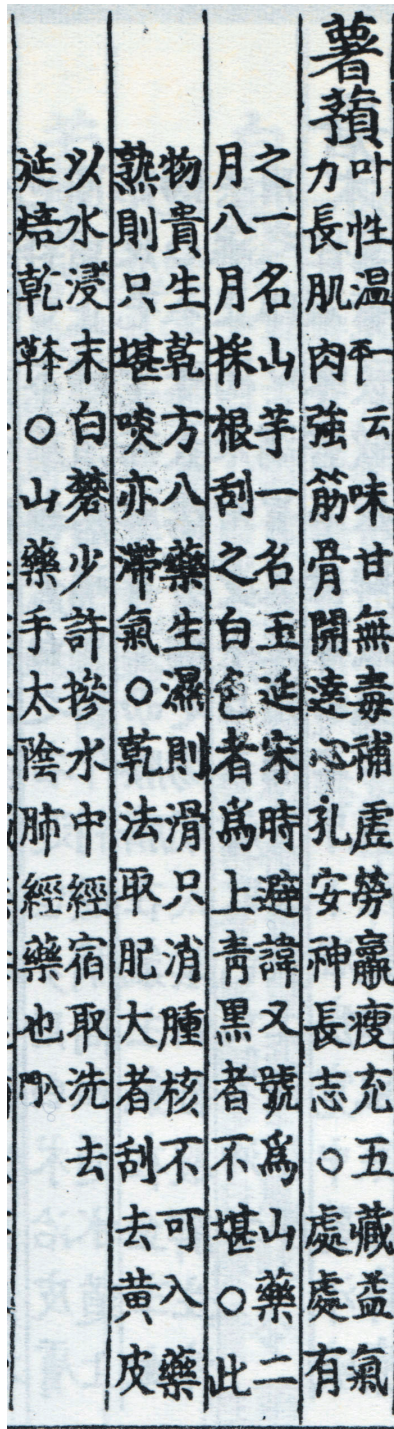 薯蕷
마性温平一云味甘無毒補虛勞羸瘦充五藏益氣
力長肌肉強筋骨開達心孔安神長志○處處有
之一名山芋一名玉延宋時避諱又號爲山藥二
月八月採根刮之白色者爲上青黑者不堪○此
物貴生乾方入藥生濕則滑只消腫核不可入藥
熟則只堪啖亦滯氣○乾法取肥大者刮去黃皮
以水浸末白礬少許摻水中經宿取洗去
延焙乾本草○山藥手太陰肺經藥也入門